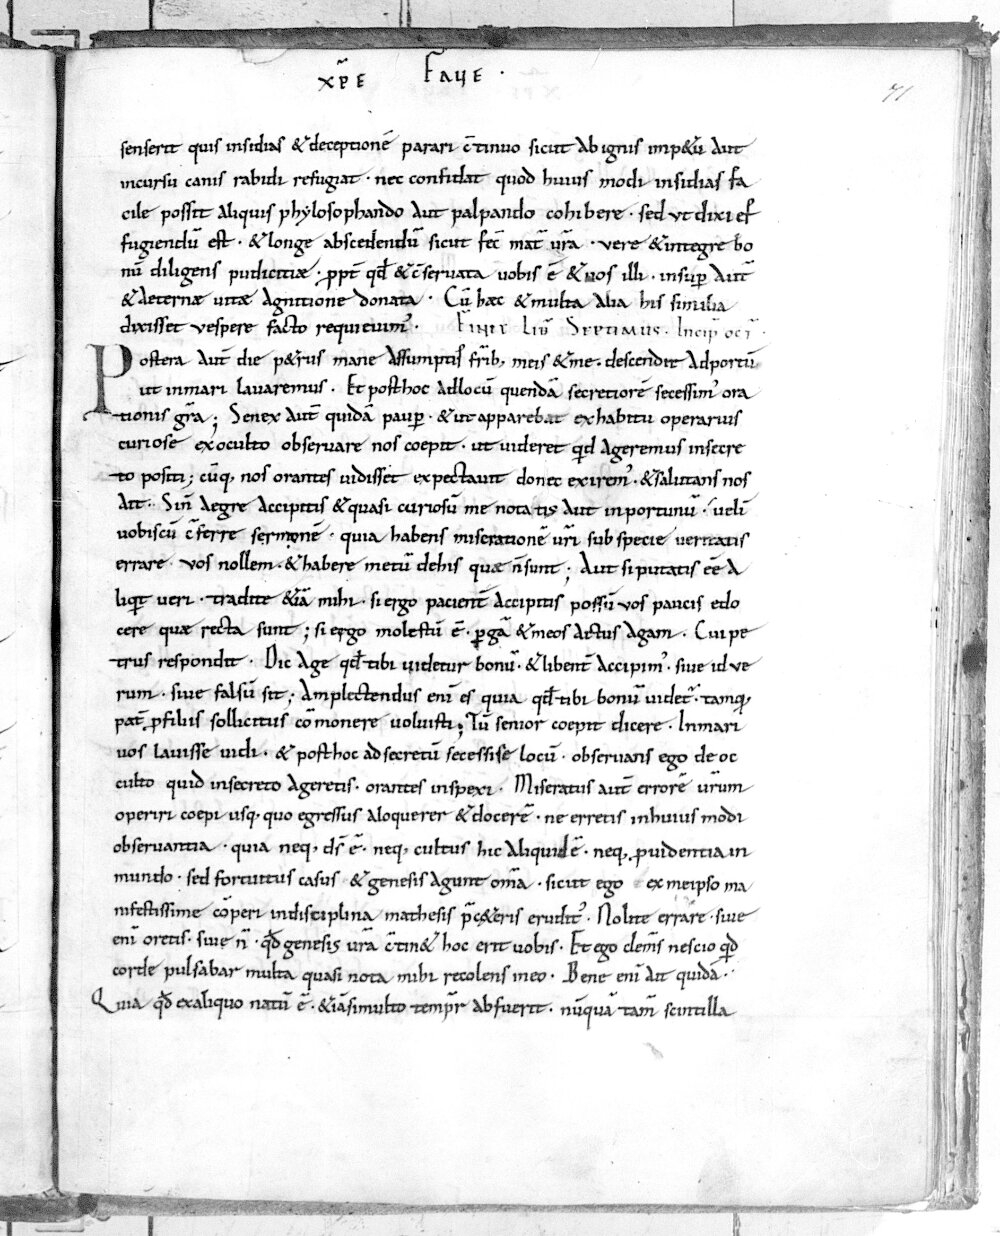 xp̄e faue ·
71
senserit quis insidias &deceptionē parari c̄tinuo sicut ab ignis imp&u aut
incursu canis rabidi refugiat · nec confidat quod huius modi insidias fa
cile possit aliquis phylosophando aut palpando cohibere · sed ut dixi ef
fugiendū est · &longe abscedendū sicut fec̄ mat̄ ur̄a · vere &integre bo
nū diligens pudicitiæ · ꝓpt̄ qd̄ &c̄servata vobis ē &uos illi · insuꝑ aut̄
&aeternæ uitæ agnitione donata · Cū hæc &multa alia his similia
dixisset vespere facto requieuim᾿ · Finit Lib̄ Septimus · Incip̄ oct̄ ·
Postera aut̄ die p&rus mane assumptis fr̄ib, meis &me · descendit adportū
ut inmari lauaremus · Et posthoc adlocū quendā secretiorē secessim᾿ ora
tionis gr̄a ; Senex aut̄ quidā pauꝑ · &ut apparebat exhabitu operarius
curiose exoculto observare nos coepit · ut uideret qid ageremus insecre
to positi ; cūq, nos orantes uidisset expectauit donec exirem᾿ · &salutans nos
ait · Sin̄ aegre accipitis &quasi curiosū me notatis aut inportunū · uelī
uobiscū c̄ferre sermonē · quia habens miserationē ur̄i sub specie veritatis
errare vos nollem · &habere metū dehis quæ n̄sunt ; Aut siputatis eē a
liqit veri · tradite &iā mihi · si ergo pacient̄ accipitis possū vos paucis edo
cere quæ recta sunt ; si ergo molestū ē · ꝑgā &meos actus agam · Cui pe
trus respondit · Dic age qd̄ tibi uidetur bonū · &libent̄ accipim᾿ · siue id ve
rum · siue falsū sit ; Amplectendus eni̅ es quia qd̄ tibi bonū uidet᾿ · tamq,
pat̄ ꝓfiliis sollicitus co̅monere uoluisti ; Tū senior coepit dicere · Inmari
uos lauisse uidi · & posthoc adsecretū secessise locū · observans ego de oc
culto quid insecreto ageretis · orantes inspexi · Miseratus aut̄ errorē ur̄um
operiri coepi usq, quo egressus aloquerer &docerē · ne erretis inhuius modi
observantia · quia neq, ds̄ ē · neq, cultus hic aliquid ē · neq, ꝓuidentia in
mundo · sed fortuitus casus · &genesis agunt om̄a · sicut ego exmeipso ma
nifestissime co̅peri indisciplina mathesis p̄c&eris erudit᾿ · Nolite errare · siue
eni̅ oretis · siue n̄ · qd̄ genesis ur̄a c̄tin& hoc erit uobis · Et ego clem̄s nescio qd
corde pulsabar multa quasi nota mihi recolens ineo · Bene eni̅ ait quidā ·
Quia qd̄ exaliquo natū ē · &iāsimulto temp̄r abfuerit · nūquā tam̄ scintilla